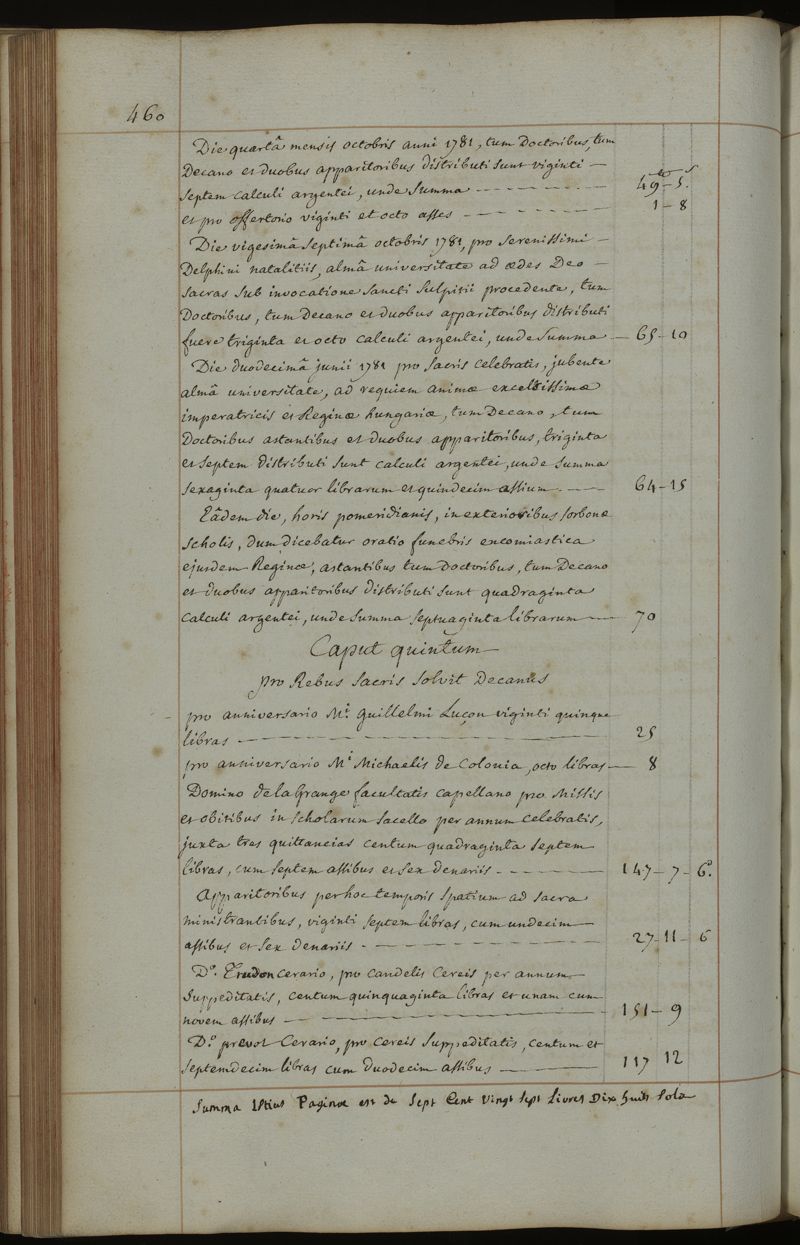 460
Die quartâ mensis octobris anni 1781, tum Doctoribus, tum
Decano et duobus apparitoribus distributi sunt viginti —
septem calculi argentei, unde summa - - - - - - 49 - 5.
et pro offertorio viginti et octo asses - - - - - - 1 - 8
Die vigesimâ septimâ octobris 1781, pro serenissimi —
Delphini natalitiis, almâ universitate ad ædes Deo —
sacras sub invocatione sancti sulpitii procedente, tum
Doctoribus, tum Decano et duobus apparitoribus distributi
fuere triginta et octo calculi argentei, unde summa — 65 - 10
Die duodecimâ junii 1781 pro sacris celebratis, jubente
almâ universitate, ad requiem animæ excelsissimæ
imperatricis et Reginæ hungariæ, tum Decano, tum
Doctoribus astantibus et duobus apparitoribus, triginta
et septem distributi sunt calculi argentei, unde summa
sexaginta quatuor librarum et quindecim assium - - - 64 - 15
Eâdem die, horis pomeridianis, in exterioribus sorbonæ
scholis, dum dicebatur oratio funebris encomiastica
ejusdem Reginæ, astantibus tum Doctoribus, tum Decano
et duobus apparitoribus distributi sunt quadraginta
calculi argentei, unde summa septuaginta librarum — 70
Caput quintum
pro Rebus sacris solvit Decanus
pro anniversario Mi. guillelmi Luçon viginti quinque
libras — 25
pro anniversario Mi Michaelis de Colonia, octo libras — 8
Domino de la Grange facultatis capellano pro Missis
et obitibus in scholarum sacello per annum celebratis,
juxta tres quittancias centum quadraginta septem
libras, cum septem assibus et sex denariis - - - - - 147 - 7 - 6d.
Apparitoribus per hoc temporis spatium ad sacra
ministrantibus, viginti septem libras, cum undecim —
assibus et sex denariis - - - - - - 27 - 11 - 6
Do. Trudon cerario, pro candelis cereis per annum —
suppeditatis, centum quinquaginta libras et unam cum
novem assibus — 151 - 9
Do prevot Cerario, pro cereis suppeditatis, centum et
septemdecim libras cum duodecim assibus — 117 12
Summa istius Paginæ est de Sept Cent vingt sept Livres Dix huit sols